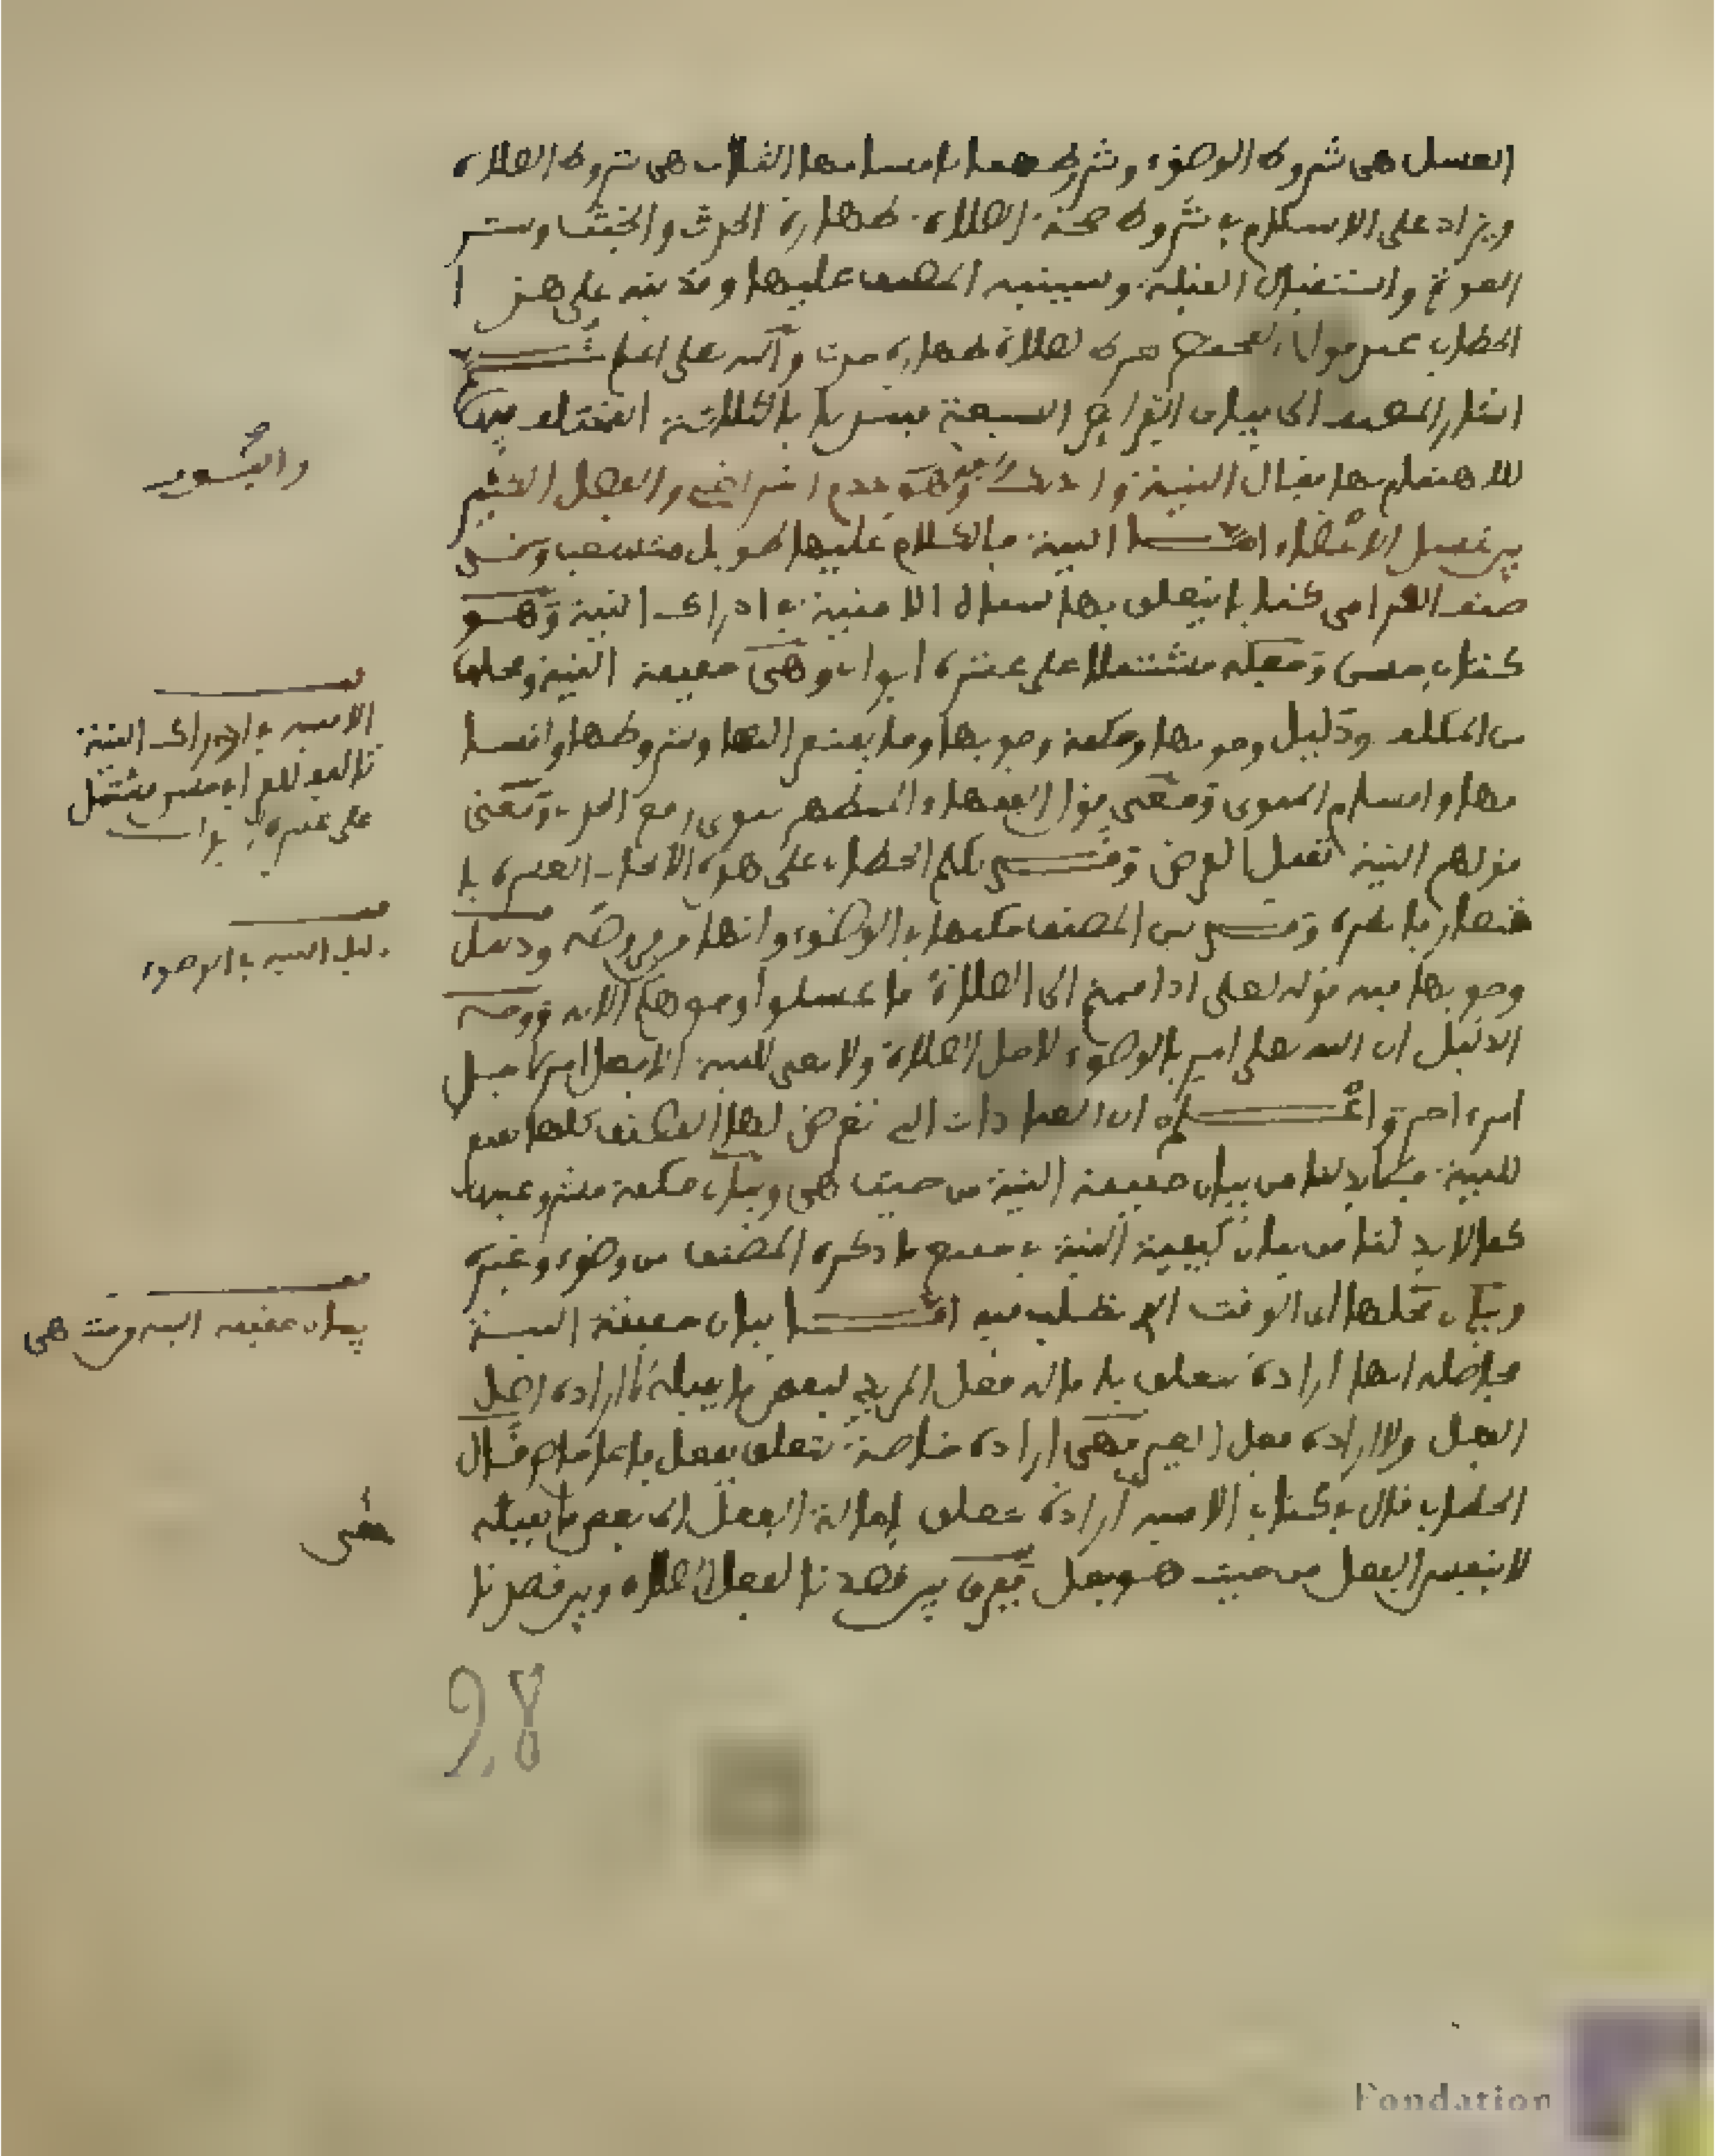 الغسل هي شروط الوضوء وشروطهما باقسامها الثلاث هي شروط الصلاة
ويزاد على الاسلام في شروط صحة الصلاة طهارة الحدث والخبث وستر
العورة واستقبال القبلة وسينبه المصنف عليها وقد نبه على هذا
الحطاب عند قوله شرط لصلاة طهارة حدث والله تعالى اعلم ثم
اشار المصنف الى بيان الفرائض السبعة
للاهتمام بها فقال النية والدلك
في غسل الاعضاء اما النية فالكلام عليها طويل متشعب وقد
صنف القرافي كتابا يتعلق بها سماه الامنية في ادراك النية وهو
كتاب حسن وجعله مشتملا على عشرة ابواب وهي حقيقة النية ومحلها
من المكلف ودليل وجوبها وحكمة وجوبها وما يفتقر اليها وشروطها واقسا
مها واقسام المنوي ومعنى قول الفقهاء المتطهر ينوي رفع الحدث ومعنى
قولهم النية تقبل الرفض وقد تكلم الحطاب على هذه الابحاث العشرة با
وقد بين المصنف حكمها في الوضوء وانها فريضة ودليل
وجوبها فيه قوله تعالى اذا قمتم الى الصلاة فاغسلوا وجوهكم الاية ووجه
الدليل ان الله تعالى امر بالوضوء لاجل الصلاة ولا معنى للنية الا فعل امر لاجل
امر اخر واعلم ان العبادات التي تعرض لها المصنف كلها
للنية فلا بد لنا من بيان حقيقة النية من حيث هي وبيان حكمة مشروعيتها
كما لا بد لنا من بيان كيفية النية في جميع ما ذكره المصنف من وضوء وغيره
وبيان محلها اي الوقت الذي تطلب فيه اما بيان حقيقة النية
فحاصله انها ارادة تتعلق بامالة فعل المريد لبعض ما يقبله لا ارادة اصل
الفعل ولا ارادة فعل الغير فهي ارادة خاصة تتعلق بفعل قال
الحطاب قال في كتاب الامنية ارادة تتعلق بامالة الفعل الى بعض ما يقبله
لا بنفس الفعل من حيث هو فعل ففرق بين قصدنا لفعل الصلاة وبين قصدنا
والفور
قف
الامنية في ادراك النية
تاليف للقرافي مشتمل
على عشرة ابواب
قف
دليل النية في الوضوء
قف
بيان حقيقة النية من حيث هي
98
Fondation